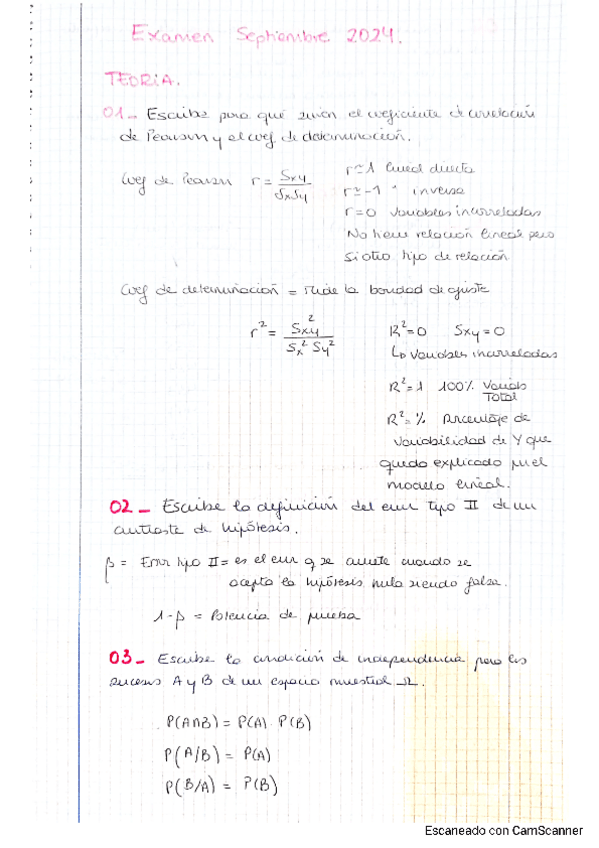 Examen Septiembre 2024.
TEORIA.
01_ Escribe para qué sirven el coeficiente de correlación
de Pearson y el coef de determinación.
Coef de Pearson r = Sxy / SxSy
r≈1 lineal directa
r≈-1 " inversa
r=0 Variables incorreladas
No tienen relación lineal pero
si otro tipo de relación
Coef de determinación = mide la bondad de ajuste
r² = Sxy² / Sx² Sy²
R²=0 Sxy=0
↳ Variables incorreladas
R²=1 100% Variab Total
R²=% Porcentaje de
Variabilidad de Y que
queda explicado por el
modelo lineal.
02_ Escribe la definición del error tipo II de un
contraste de hipótesis.
β = Error tipo II = es el error q se comete cuando se
acepta la hipótesis nula siendo falsa.
1-β = Potencia de prueba
03_ Escribe la condición de independencia para los
sucesos A y B de un espacio muestral Ω.
P(A∩B) = P(A) · P(B)
P(A/B) = P(A)
P(B/A) = P(B)
Escaneado con CamScanner